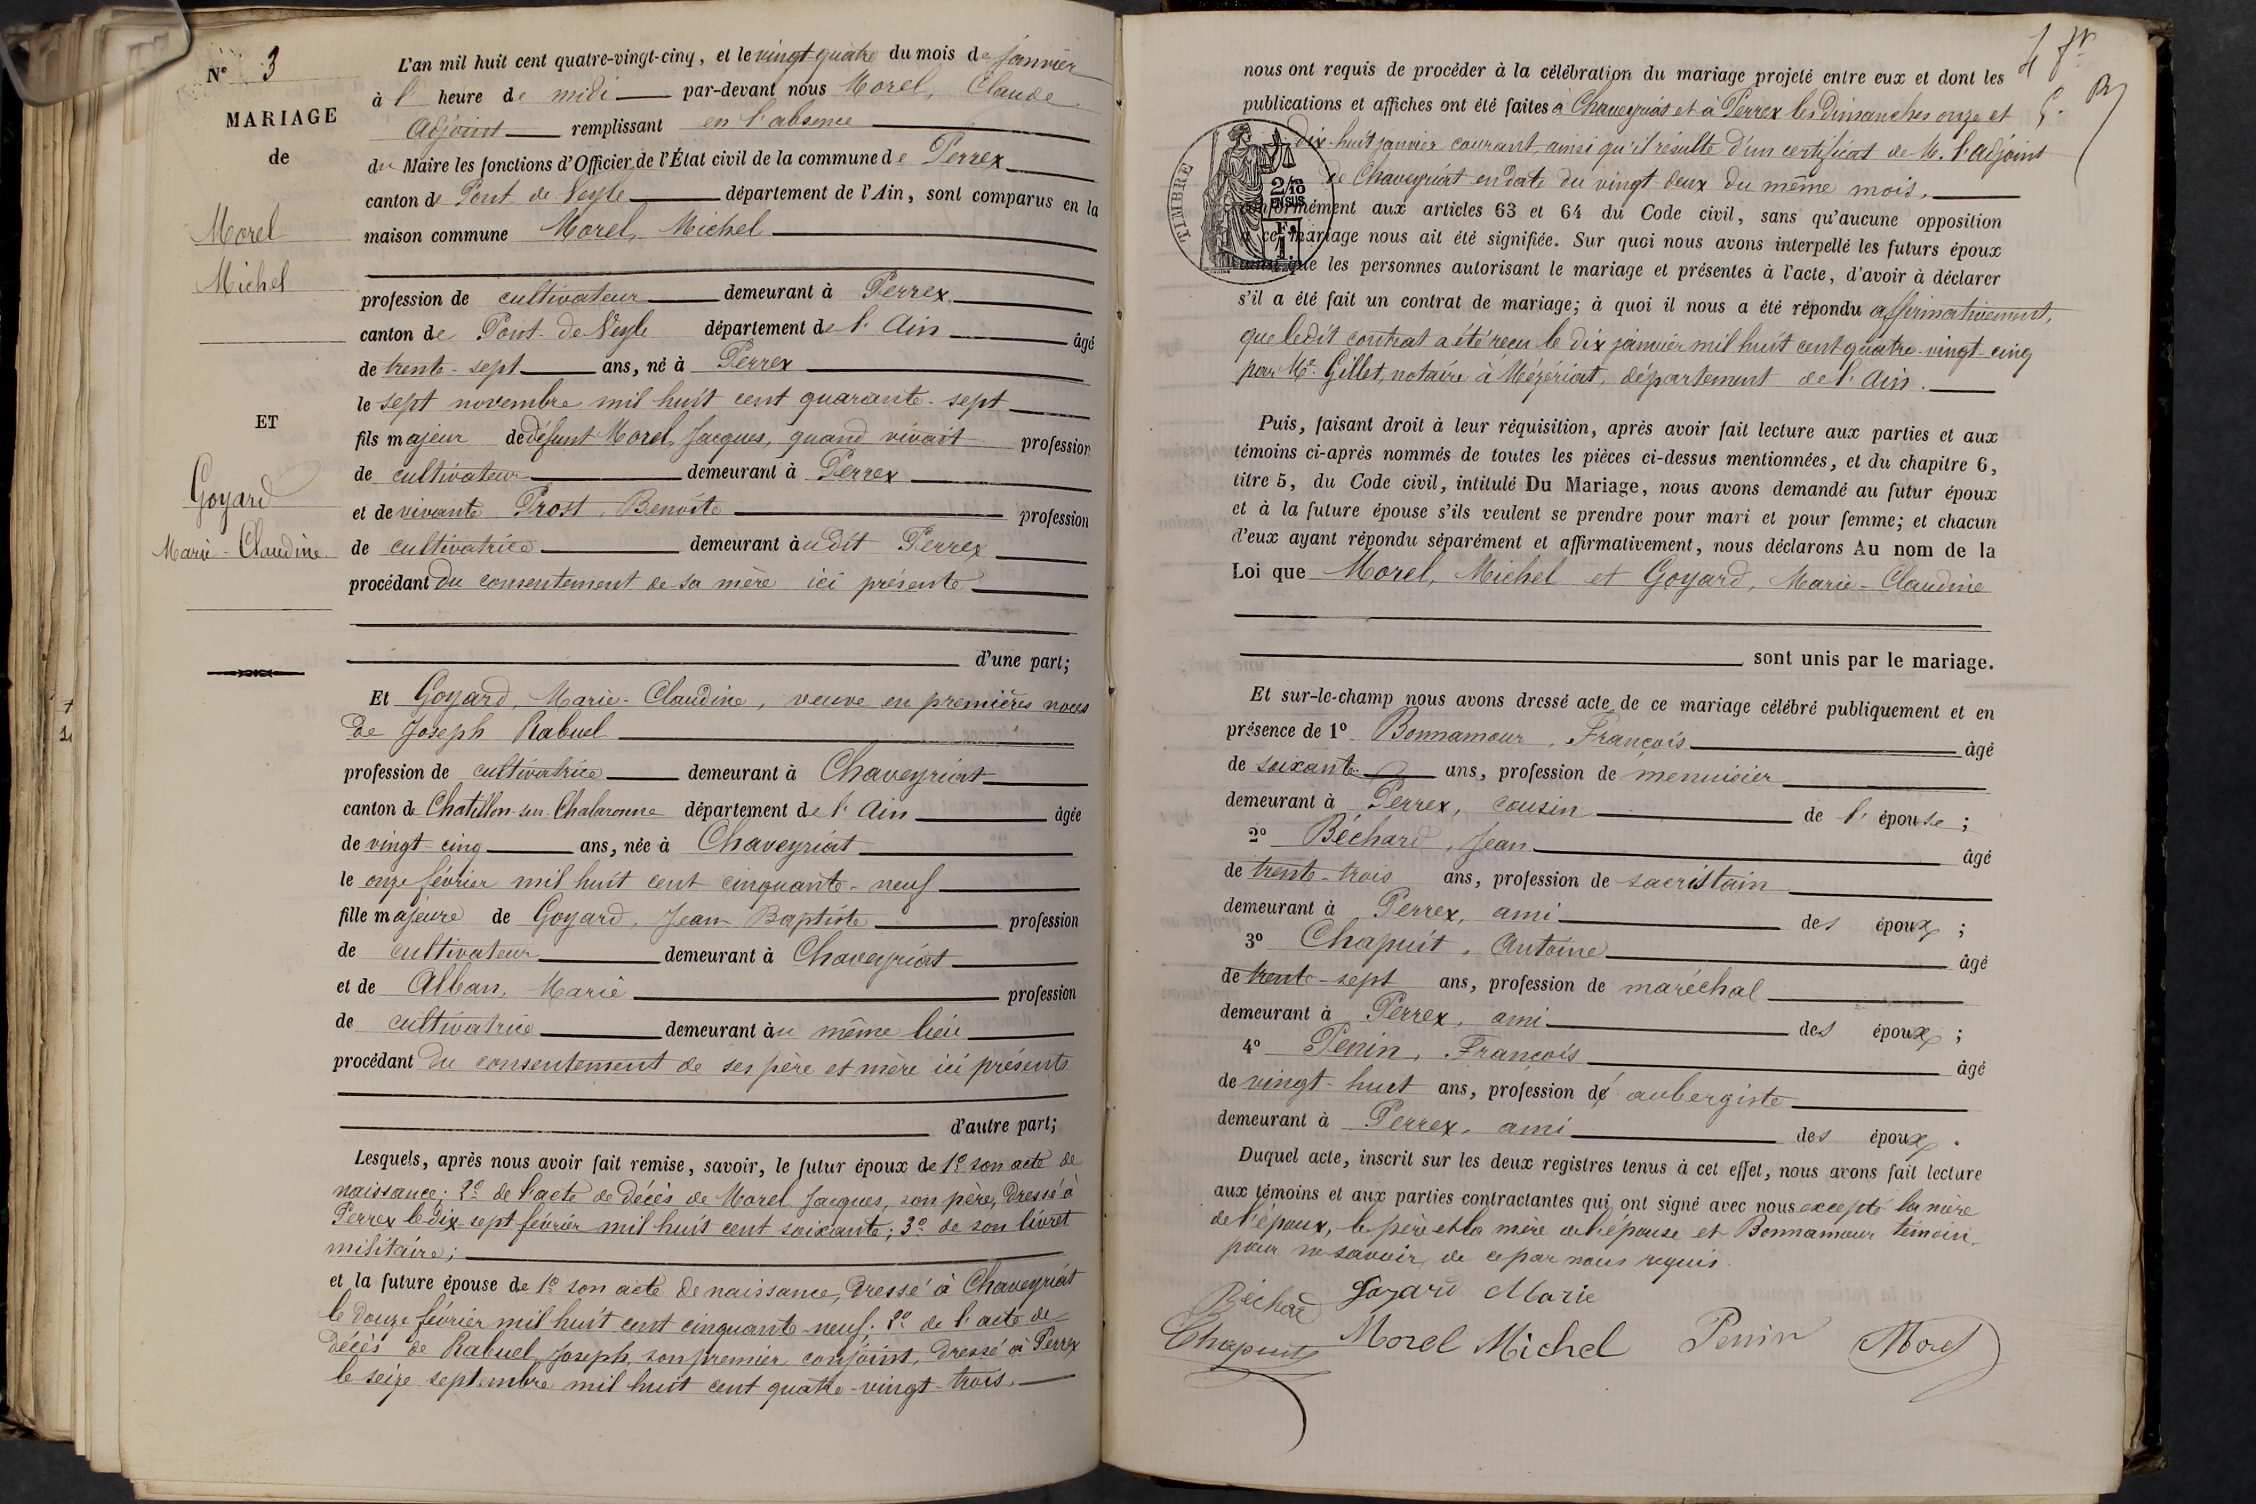 N° 3
MARIAGE
de
Morel
Michel
ET
Goyard
Marie-Claudine
L'an mil huit cent quatre-vingt-cinq, et le vingt-quatre du mois de janvier
à l' heure de midi par-devant nous Morel, Claude
Adjoint remplissant en l'absence
du Maire les fonctions d'Officier de l'État civil de la commune de Perrex
canton de Pont de Veyle département de l'Ain, sont comparus en la
maison commune Morel, Michel
profession de cultivateur demeurant à Perrex
canton de Pont-de-Veyle département de l'Ain âgé
de trente-sept ans, né à Perrex
le sept novembre mil huit cent quarante-sept
fils majeur de défunt Morel, Jacques, quand vivait profession
de cultivateur demeurant à Perrex
et de vivante Prost, Benoîte profession
de cultivatrice demeurant àudit Perrex
procédant du consentement de sa mère ici présente
d'une part;
Et Goyard, Marie-Claudine, veuve en premières noces
de Joseph Rabuel
profession de cultivatrice demeurant à Chaveyriat
canton de Chatillon-sur-Chalaronne département de l'Ain âgée
de vingt-cinq ans, née à Chaveyriat
le onze février mil huit cent cinquante-neuf
fille majeure de Goyard, Jean-Baptiste profession
de cultivateur demeurant à Chaveyriat
et de Alban, Marie profession
de cultivatrice demeurant àu même lieu
procédant du consentement de ses père et mère ici présents
d'autre part;
Lesquels, après nous avoir fait remise, savoir, le futur époux de 1° son acte de
naissance; 2° de l'acte de décès de Morel Jacques, son père, dressé à
Perrex le dix-sept février mil huit cent soixante; 3° de son livret
militaire;
et la future épouse de 1° son acte de naissance, dressé à Chaveyriat
le douze février mil huit cent cinquante-neuf; 2° de l'acte de
décès de Rabuel Joseph, son premier conjoint, dressé à Perrex
le seize septembre mil huit cent quatre-vingt-trois.
nous ont requis de procéder à la célébration du mariage projeté entre eux et dont les
publications et affiches ont été faites à Chaveyriat et à Perrex les Dimanches onze et
dix-huit janvier courant, ainsi qu'il résulte d'un certificat de M. l'Adjoint
de Chaveyriat en date du vingt deux du même mois,
TIMBRE
2/10
EN SUS
1 F.
conformément aux articles 63 et 64 du Code civil, sans qu'aucune opposition
à ce mariage nous ait été signifiée. Sur quoi nous avons interpellé les futurs époux
ainsi que les personnes autorisant le mariage et présentes à l'acte, d'avoir à déclarer
s'il a été fait un contrat de mariage; à quoi il nous a été répondu affirmativement,
que ledit contrat a été reçu le dix janvier mil huit cent quatre-vingt-cinq
par Me. Gillet, notaire à Mézériat, département de l'Ain.
Puis, faisant droit à leur réquisition, après avoir fait lecture aux parties et aux
témoins ci-après nommés de toutes les pièces ci-dessus mentionnées, et du chapitre 6,
titre 5, du Code civil, intitulé Du Mariage, nous avons demandé au futur époux
et à la future épouse s'ils veulent se prendre pour mari et pour femme; et chacun
d'eux ayant répondu séparément et affirmativement, nous déclarons Au nom de la
Loi que Morel, Michel et Goyard, Marie-Claudine
sont unis par le mariage.
Et sur-le-champ nous avons dressé acte de ce mariage célébré publiquement et en
présence de 1° Bonnamour, François âgé
de soixante ans, profession de menuisier
demeurant à Perrex, cousin de l'épouse;
2° Béchard, Jean âgé
de trente-trois ans, profession de sacristain
demeurant à Perrex, ami des époux;
3° Chapuit, Antoine âgé
de trente-sept ans, profession de maréchal
demeurant à Perrex, ami des époux;
4° Penin, François âgé
de vingt-huit ans, profession d' aubergiste
demeurant à Perrex, ami des époux.
Duquel acte, inscrit sur les deux registres tenus à cet effet, nous avons fait lecture
aux témoins et aux parties contractantes qui ont signé avec nous excepté la mère
de l'époux, le père et la mère de l'épouse et Bonnamour témoin,
pour ne savoir, de ce par nous requis.
Béchard Goyard Marie
Chapuit Morel Michel Penin Morel